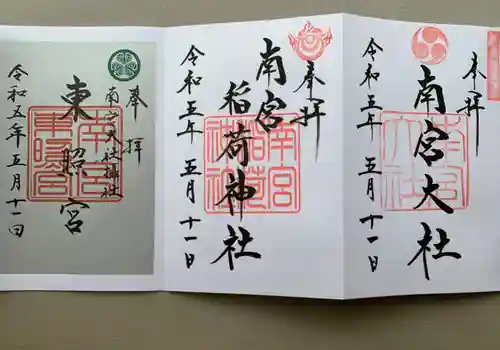 奉拝
南宮大社
令和五年 五月 十一日
奉拝
南宮
稲荷神社
令和五年 五月 十一日
奉拝
南宮大社摂社
東照宮
令和五年五月十一日